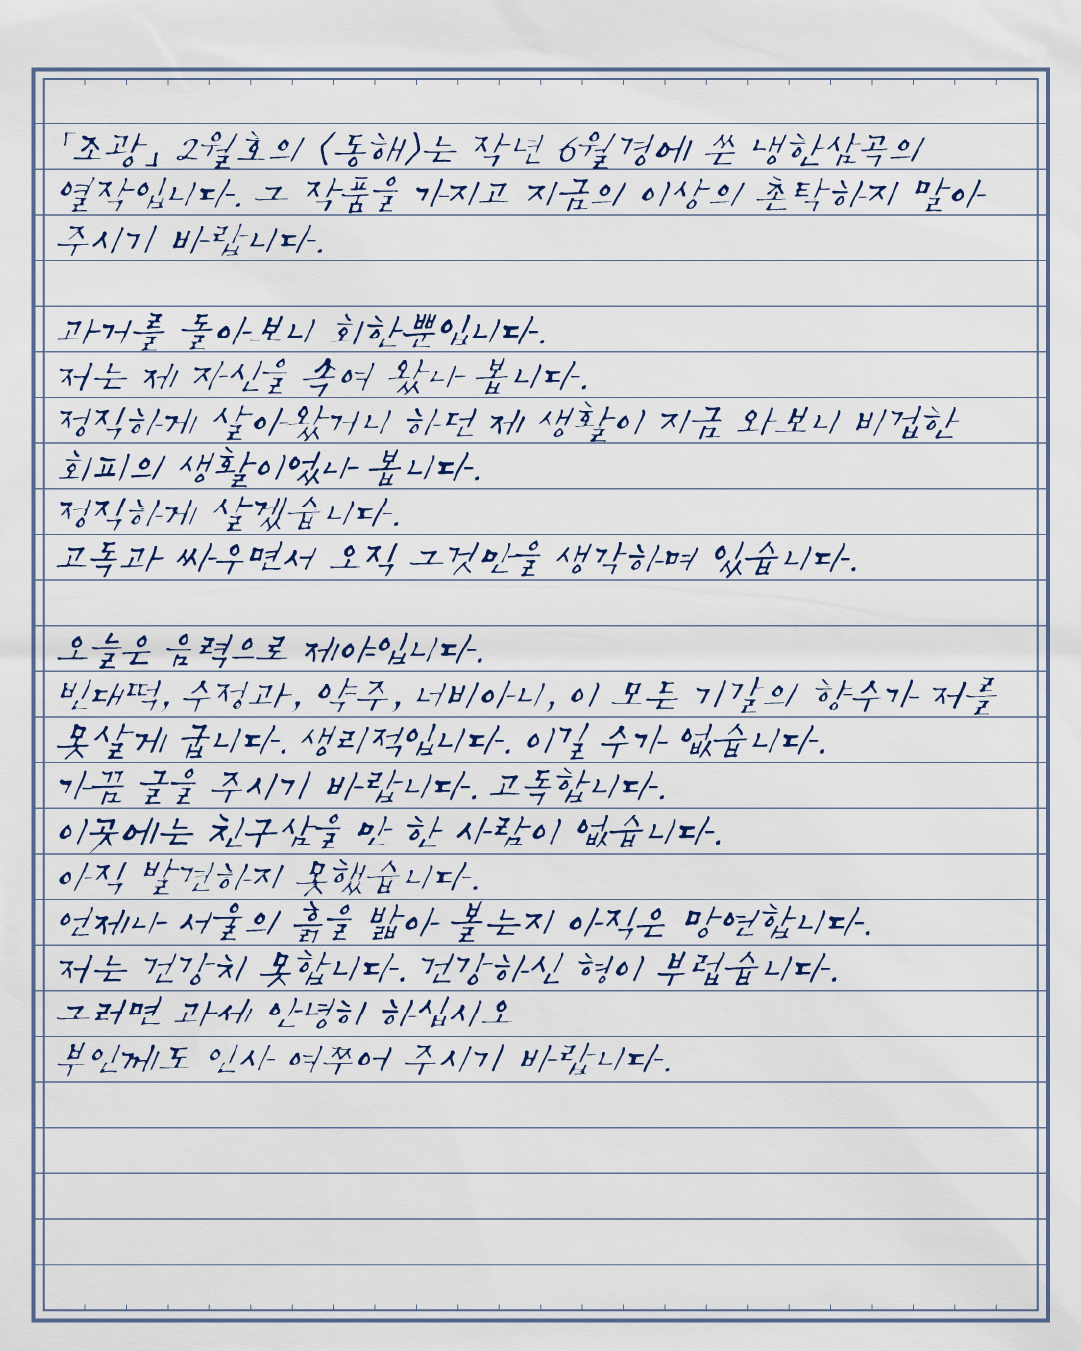 「조광」 2월호의 〈동해〉는 작년 6월경에 쓴 냉한삼곡의
열작입니다. 그 작품을 가지고 지금의 이상의 촌탁하지 말아
주시기 바랍니다.
과거를 돌아보니 회한뿐입니다.
저는 제 자신을 속여 왔나 봅니다.
정직하게 살아왔거니 하던 제 생활이 지금 와보니 비겁한
회피의 생활이었나 봅니다.
정직하게 살겠습니다.
고독과 싸우면서 오직 그것만을 생각하며 있습니다.
오늘은 음력으로 제야입니다.
빈대떡, 수정과, 약주, 너비아니, 이 모든 기갈의 향수가 저를
못살게 굽니다. 생리적입니다. 이길 수가 없습니다.
가끔 글을 주시기 바랍니다. 고독합니다.
이곳에는 친구삼을 만 한 사람이 없습니다.
아직 발견하지 못했습니다.
언제나 서울의 흙을 밟아 볼는지 아직은 망연합니다.
저는 건강치 못합니다. 건강하신 형이 부럽습니다.
그러면 과세 안녕히 하십시오
부인께도 인사 여쭈어 주시기 바랍니다.